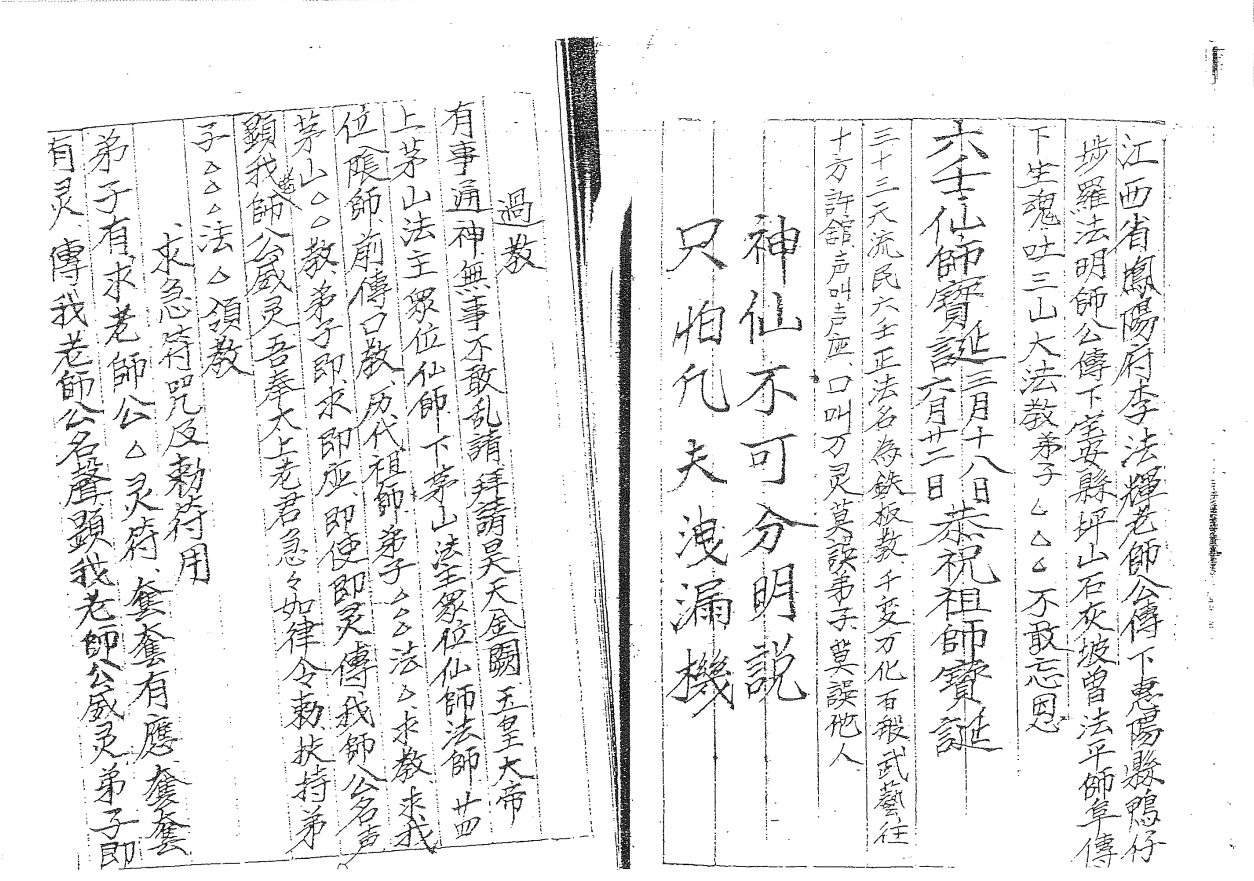 江西省鳳陽府李法輝老師公傳下惠陽縣鴨仔
埗羅法明師公傳下宝安縣坪山石灰坡曾法平師阜傳
下生魂吐三山大法教弟子△△△不敢忘恩
六壬仙師寶誕三月十八日六月廿二日恭祝祖師寶誕
三十三天流民六壬正法名為鉄板教千变万化百般武藝往
十方許舘声叫声应口叫万灵莫誤弟子莫誤他人
神仙不可分明説
只怕凡夫洩漏機
過教
有事通神無事不敢乱請拜請昊天金闕玉皇大帝
上茅山法主眾位仙師下茅山法主眾位仙師法師廿四
位隂師前傳口教历代祖師弟子△△△法△求教求我
茅山△△教弟子即求即应即使即灵傳我師公名声
顯我師公威灵吾奉太上老君急々如律令勅扶持弟
子△△△法△領教
求急符咒及勅符用
弟子有求老師公△灵符奪奪有應奪奪
有灵傳我老師公名聲顯我老師公威灵弟子即